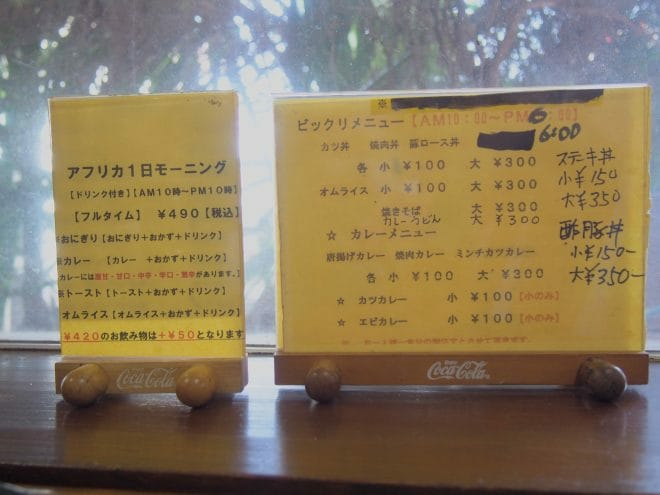 アフリカ１日モーニング
【ドリンク付き】【AM10時～PM10時】
【フルタイム】 ￥490【税込】
※おにぎり【おにぎり＋おかず＋ドリンク】
※カレー 【カレー ＋おかず＋ドリンク】
カレーには激甘・甘口・中辛・辛口・激辛があります。】
※トースト【トースト＋おかず＋ドリンク】
オムライス【オムライス＋おかず＋ドリンク】
￥420のお飲み物は＋￥50となります
Coca-Cola
※
ビックリメニュー【AM10：00～PM6：00】
6:00
カツ丼 焼肉丼 豚ロース丼
各 小 ￥100 大 ￥300
オムライス 小 ￥100 大 ￥300
焼きそば 大 ￥300
カレーうどん 大 ￥300
☆ カレーメニュー
唐揚げカレー 焼肉カレー ミンチカツカレー
各 小 ￥100 大 ￥300
☆ カツカレー 小 ￥100【小のみ】
☆ エビカレー 小 ￥100【小のみ】
ステーキ丼
小￥150
大￥350
酢豚丼
小￥150-
大￥350-
Coca-Cola